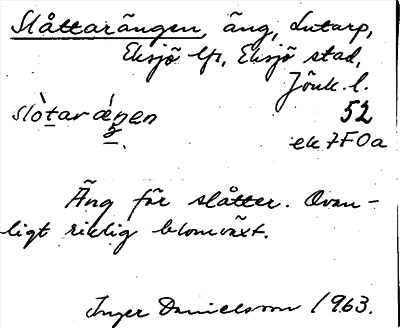 Slåttarängen, äng, Lutarp,
Eksjö lfs, Eksjö stad,
Jönk. l.
slòtaráŋen 52
ek 7F0a
Äng för slåtter. Ovan-
ligt riklig blomväxt.
Inger Danielsson 1963.